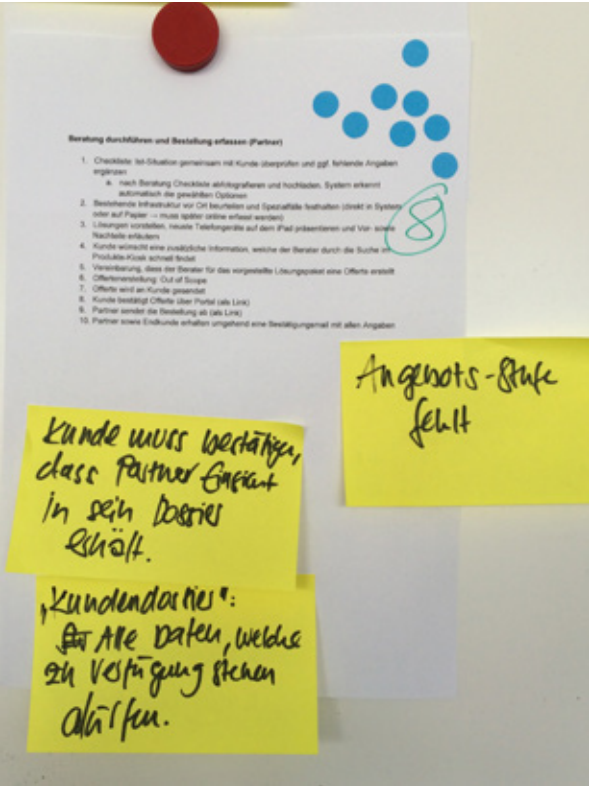 Beratung durchführen und Bestellung erfassen (Partner)
1. Checkliste: Ist-Situation gemeinsam mit Kunde überprüfen und ggf. fehlende Angaben
ergänzen
a. nach Beratung Checkliste abfotografieren und hochladen. System erkennt
automatisch die gewählten Optionen
2. Bestehende Infrastruktur vor Ort beurteilen und Spezialfälle festhalten (direkt in System
oder auf Papier → muss später online erfasst werden)
3. Lösungen vorstellen, neuste Telefongeräte auf dem iPad präsentieren und Vor- sowie
Nachteile erläutern
4. Kunde wünscht eine zusätzliche Information, welche der Berater durch die Suche im
Produkte-Kiosk schnell findet
5. Vereinbarung, dass der Berater für das vorgestellte Lösungspaket eine Offerte erstellt
6. Offertenerstellung: Out of Scope
7. Offerte wird an Kunde gesendet
8. Kunde bestätigt Offerte über Portal (als Link)
9. Partner sendet die Bestellung ab (als Link)
10. Partner sowie Endkunde erhalten umgehend eine Bestätigungsmail mit allen Angaben
8
Angebots-Stufe
fehlt
Kunde muss bestätigen,
dass Partner Einsicht
in sein Dossier
erhält.
„Kundendossier":
Alle Daten, welche
zu Verfügung stehen
dürfen.